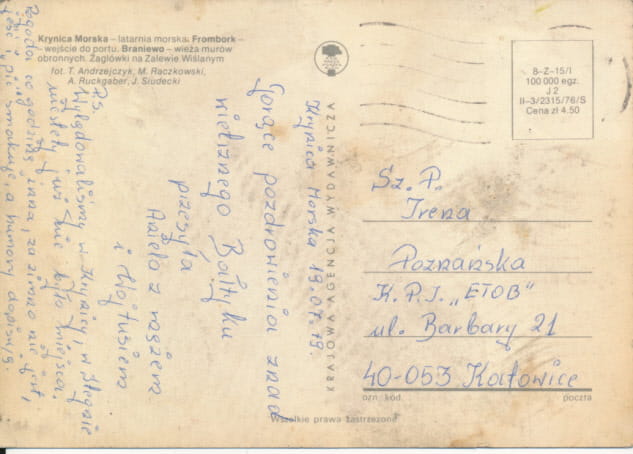 Krynica Morska – latarnia morska. Frombork –
– wejście do portu. Braniewo – wieża murów
obronnych. Żaglówki na Zalewie Wiślanym
fot. T. Andrzejczyk, M. Raczkowski,
A. Ruckgaber, J. Siudecki
8-Z-15/I
100 000 egz.
J 2
II-3/2315/76/S
Cena zł 4.50
KRAJOWA AGENCJA WYDAWNICZA
Krynica Morska 19.07.79.
Gorące pozdrowienia znad
nieliznego Bałtyku
przesyła
Aniela z naszem
i Wojtusiem
PS
Wylądowaliśmy w Krynicy, w Stegnie
niestety już nie było miejsca.
Pogoda co godzinę inna, za zimno nie jest,
jeść i pić smakuje, a humory dopisują.
Sz. P.
Irena
Poznańska
K.P.J. „ETOB"
ul. Barbary 21
40-053 Katowice
ozn. kod. poczta
Wszelkie prawa zastrzeżone